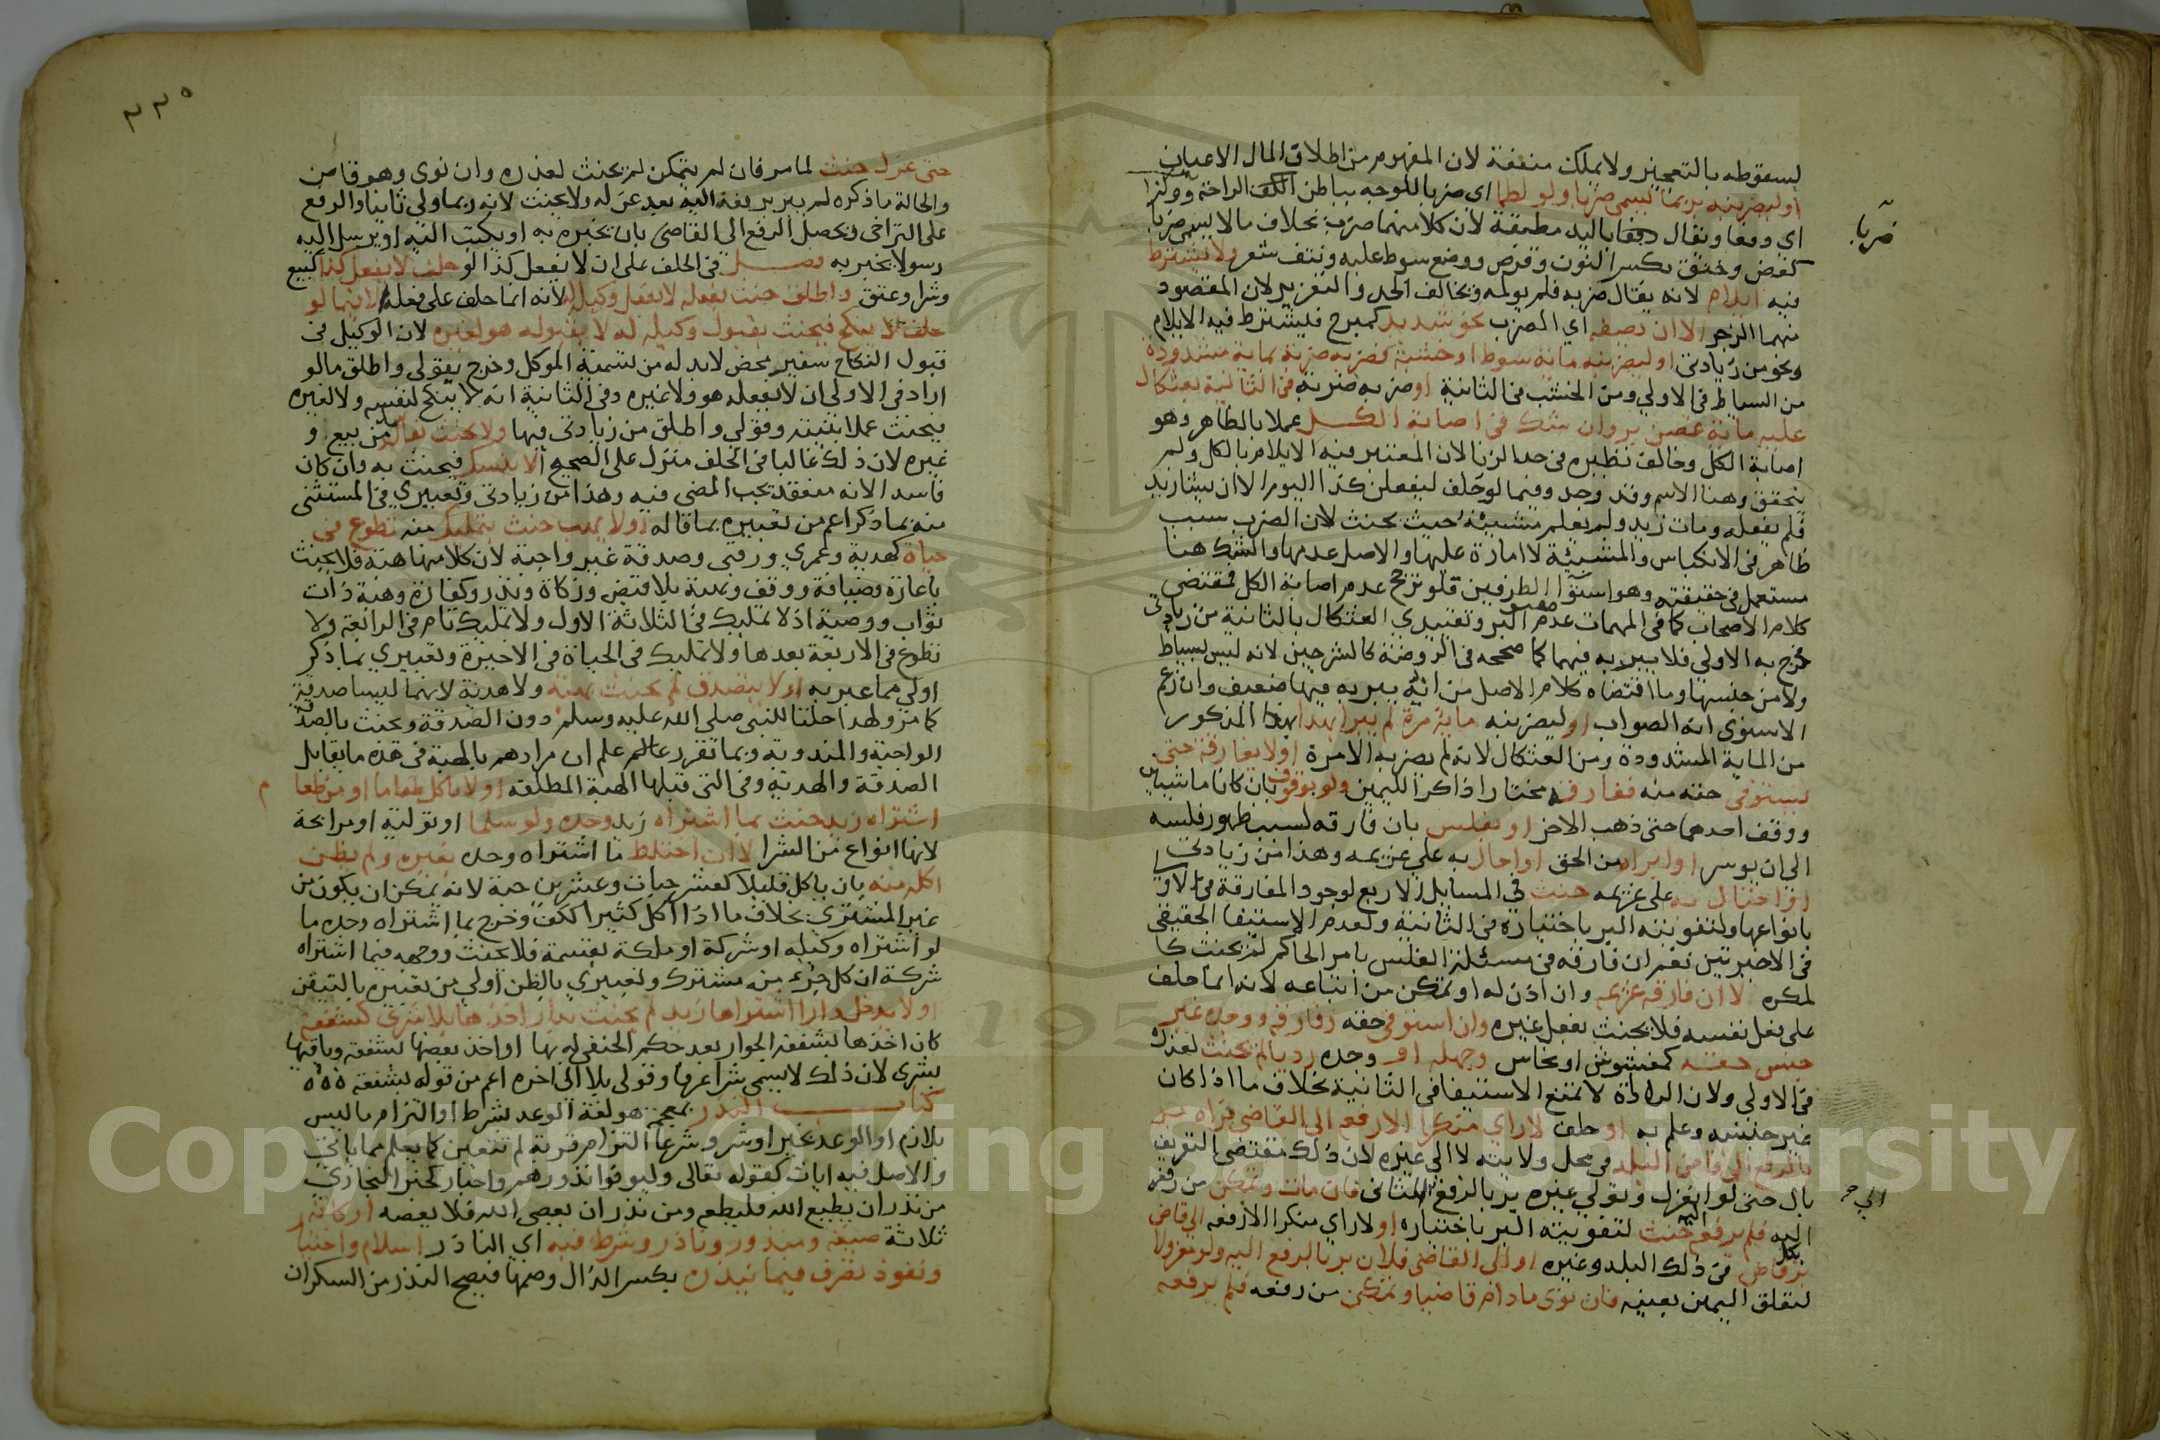 لسقوطه بالتعجيز ولا يملك منفعة لان المفهوم من اطلاق المال الاعيان
او ليضربنه بر بما يسمى ضربا ولو لطما اى ضربا للوجه بباطن الكف الراحة ووكزا
اى دفعا ويقال دفعا باليد مطبقة لان كلا منهما ضرب بخلاف ما لا يسمى ضربا
ضربا
كعض وخنق بكسر النون وقرص ووضع سوط عليه ونتف شعر ولا يشترط
فيه ايلام لانه يقال ضربه فلم يولمه ويخالف الحد والتعزير لان المقصود
منهما الزجر الا ان يصفه اي الضرب بنحو شديد كمبرح فيشترط فيه الايلام
ونحو من زيادتى او ليضربنه ماية سوط او خشبة فضربه ضربة بماية مشدودة
من السياط فى الاولي ومن الخشب فى الثانية او ضربه ضربة فى الثانية بعثكال
عليه ماية غصن بر وان شك فى اصابة الكل عملا بالظاهر وهو
اصابة الكل وخالف نظيره فى حد الزنا لان المعتبر فيه الايلام بالكل ولم
يتحقق وهنا الاسم وقد وجد وفيما لو حلف ليفعلن كذا اليوم الا ان يشا زيد
فلم يفعله ومات زيد ولم يعلم مشيئته حيث يحنث لان الضرب سبب
ظاهر فى الانكباس والمشيئة لا امارة عليها والاصل عدمها والشك هنا
مستعمل فى حقيقته وهو استوا الطرفين فلو ترجح عدم اصابة الكل فمقتضى
كلام الاصحاب كما فى المهمات عدم البر وتقييدي العثكال بالثانية من زيادتى
خرج به الاولى فلا يبر به فيها كما صححه فى الروضة كالشرحين لانه ليس بسياط
ولا من جنسها وما اقتضاه كلام الاصل من انه يبر به فيها ضعيف وان زعم
الاسنوى انه الصواب او ليضربنه ماية مرة لم يبر بهذا المذكور
من الماية المشدودة ومن العثكال لانه لم يضربه الا مرة او لا يفارقه حتى
يستوفى حقه منه ففارقه مختارا ذاكرا لليمين ولو بوقوف بان كانا ماشيين
ووقف احدهما حتى ذهب الاخر او بفلس بان فارقه بسبب ظهور فلسه
الى ان يوسر او ابراه من الحق او احال به علي غريمه وهذا من زيادتى
او احتال به على غريمه حنث فى المسايل الاربع لوجود المفارقة فى الاولى
بانواعها ولتفويته البر باختياره فى الثانية ولعدم الاستيفا الحقيقى
فى الاخيرتين نعم ان فارقه فى مسئلة الفلس بامر الحاكم لم يحنث كا
لمكره لا ان فارقه غريمه وان اذن له او تمكن من اتباعه لانه انما حلف
على فعل نفسه فلا يحنث بفعل غيره وان استوفى حقه وفارقه ووجده غير
جنس حقه كمغشوش او نحاس وجهله او وجده رديا لم يحنث لعذره
فى الاولي ولان الرداة لا تمنع الاستيفا فى الثانية بخلاف ما اذا كان
غير جنسه وعلم به او حلف لا راى منكرا الا رفعه الى القاضى فراه بر
بالرفع الى قاض البلد فى محل ولايته لا الي غيره لان ذلك مقتضى التعريف
بال حتى لو انعزل وتولى غيره بر بالرفع الى الثانى فان مات وتمكن من رفعه
الي
اليه فلم يرفعه حنث لتفويته البر باختياره او لا راي منكرا الا رفعه الى قاض
بر بكل قاض فى ذلك البلد وغيره او الى القاضى فلان بر بالرفع اليه ولو معزولا
لتعلق اليمين بعينه فان نوى ما دام قاضيا وتمكن من رفعه فلم يرفعه
٣٣٥
حتى عزل حنث لما مر فان لم يتمكن لم يحنث لعذره وان نوى وهو قاض
والحالة ما ذكره لم يبر برفعه اليه بعد عزله ولا يحنث لانه ربما ولي ثانيا والرفع
على التراخى ويحصل الرفع الى القاضى بان يخبره به او يكتب اليه او يرسل اليه
رسولا يخبر به فصل فى الحلف على ان لا يفعل كذا لو حلف لا يفعل كذا كبيع
وشرا وعتق واطلق حنث بفعله لا بفعل وكيله لانه انما حلف على فعله الا فيما لو
حلف لا ينكح فيحنث بقبول وكيله له لا بقبوله هو لغيره لان الوكيل فى
قبول النكاح سفير محض لا بد له من تسمية الموكل وخرج بقولى واطلق ما لو
اراد فى الاولى ان لا يفعله هو ولا غيره وفى الثانية انه لا ينكح لنفسه ولا لغيره
فيحنث عملا بنيته وقولي واطلق من زيادتى فيها ولا يحنث بفاسد من بيع و
غيره لان ذلك غالبا فى الحلف منزل على الصحيح الا بنسك فيحنث به وان كان
فاسدا لانه منعقد يجب المضى فيه وهذا من زيادتى وتعبيري فى المستثنى
منه بما ذكر اعم من تعبيره بما قاله او لا يهب حنث بتمليك منه تطوع فى
حياة كهدية وعمري ورقبى وصدقة غير واجبة لان كلا منها هبة فلا يحنث
باعارة وضيافة ووقف وهبة بلا قبض وزكاة ونذر وكفارة وهبة ذات
ثواب ووصية اذ لا تمليك فى الثلاثة الاول ولا تمليك تام فى الرابعة ولا
تطوع فى الاربعة بعدها ولا تمليك فى الحياة فى الاخيرة وتعبيري بما ذكر
اولى مما عبر به او لا يتصدق لم يحنث بهبة ولا هدية لانهما ليسا صدقة
كما مر ولهذا حلتا للنبى صلى الله عليه وسلم دون الصدقة ويحنث بالصدقة
الواجبة والمندوبة وبما تقرر علم ان مرادهم بالهبة فى هذه ما يقابل
الصدقة والهدية وفى التى قبلها الهبة المطلقة او لا ياكل طعاما او من طعام
اشتراه زيد حنث بما اشتراه زيد وحده ولو سلما او تولية او مرابحة
لانها انواع من الشرا لا ان اختلط ما اشتراه وحده بغيره ولم يظن
اكله منه بان ياكل قليلا كعشر حبات وعشرين حبة لانه يمكن ان يكون من
غير المشترى بخلاف ما اذا اكل كثيرا ككف وخرج بما اشتراه وحده ما
لو اشتراه وكيله او شركة او ملكه بقسمة فلا يحنث ووجهه فيما اشتراه
شركة ان كل جزء منه مشترك وتعبيري بالظن اولي من تعبيره بالتيقن
او لا يدخل دارا اشتراها زيد لم يحنث بدار اخذها بلا شرى كشفعة
كان اخذها بشفعة الجوار بعد حكم الحنفى له بها او اخذ بعضها بشفعة وباقيها
بشرى لان ذلك لا يسمى شرا عرفا وقولي بلا الى اخره اعم من قوله بشفعة
كتاب النذر بمعجمة هو لغة الوعد بشرط او التزام ما ليس
بلازم او الوعد بخير او شر وشرعا التزام قربة لم تتعين كما يعلم مما ياتى
والاصل فيه ايات كقوله تعالى وليوفوا نذورهم واخبار كخبر البخارى
من نذر ان يطيع الله فليطعه ومن نذر ان يعصى الله فلا يعصه اركانه
ثلاثة صيغة ومنذور وناذر وشرط فيه اي الناذر اسلام واختيار
ونفوذ تصرف فيما ينذره بكسر الذال وضمها فيصح النذر من السكران
Copyright © King Saud University
1957